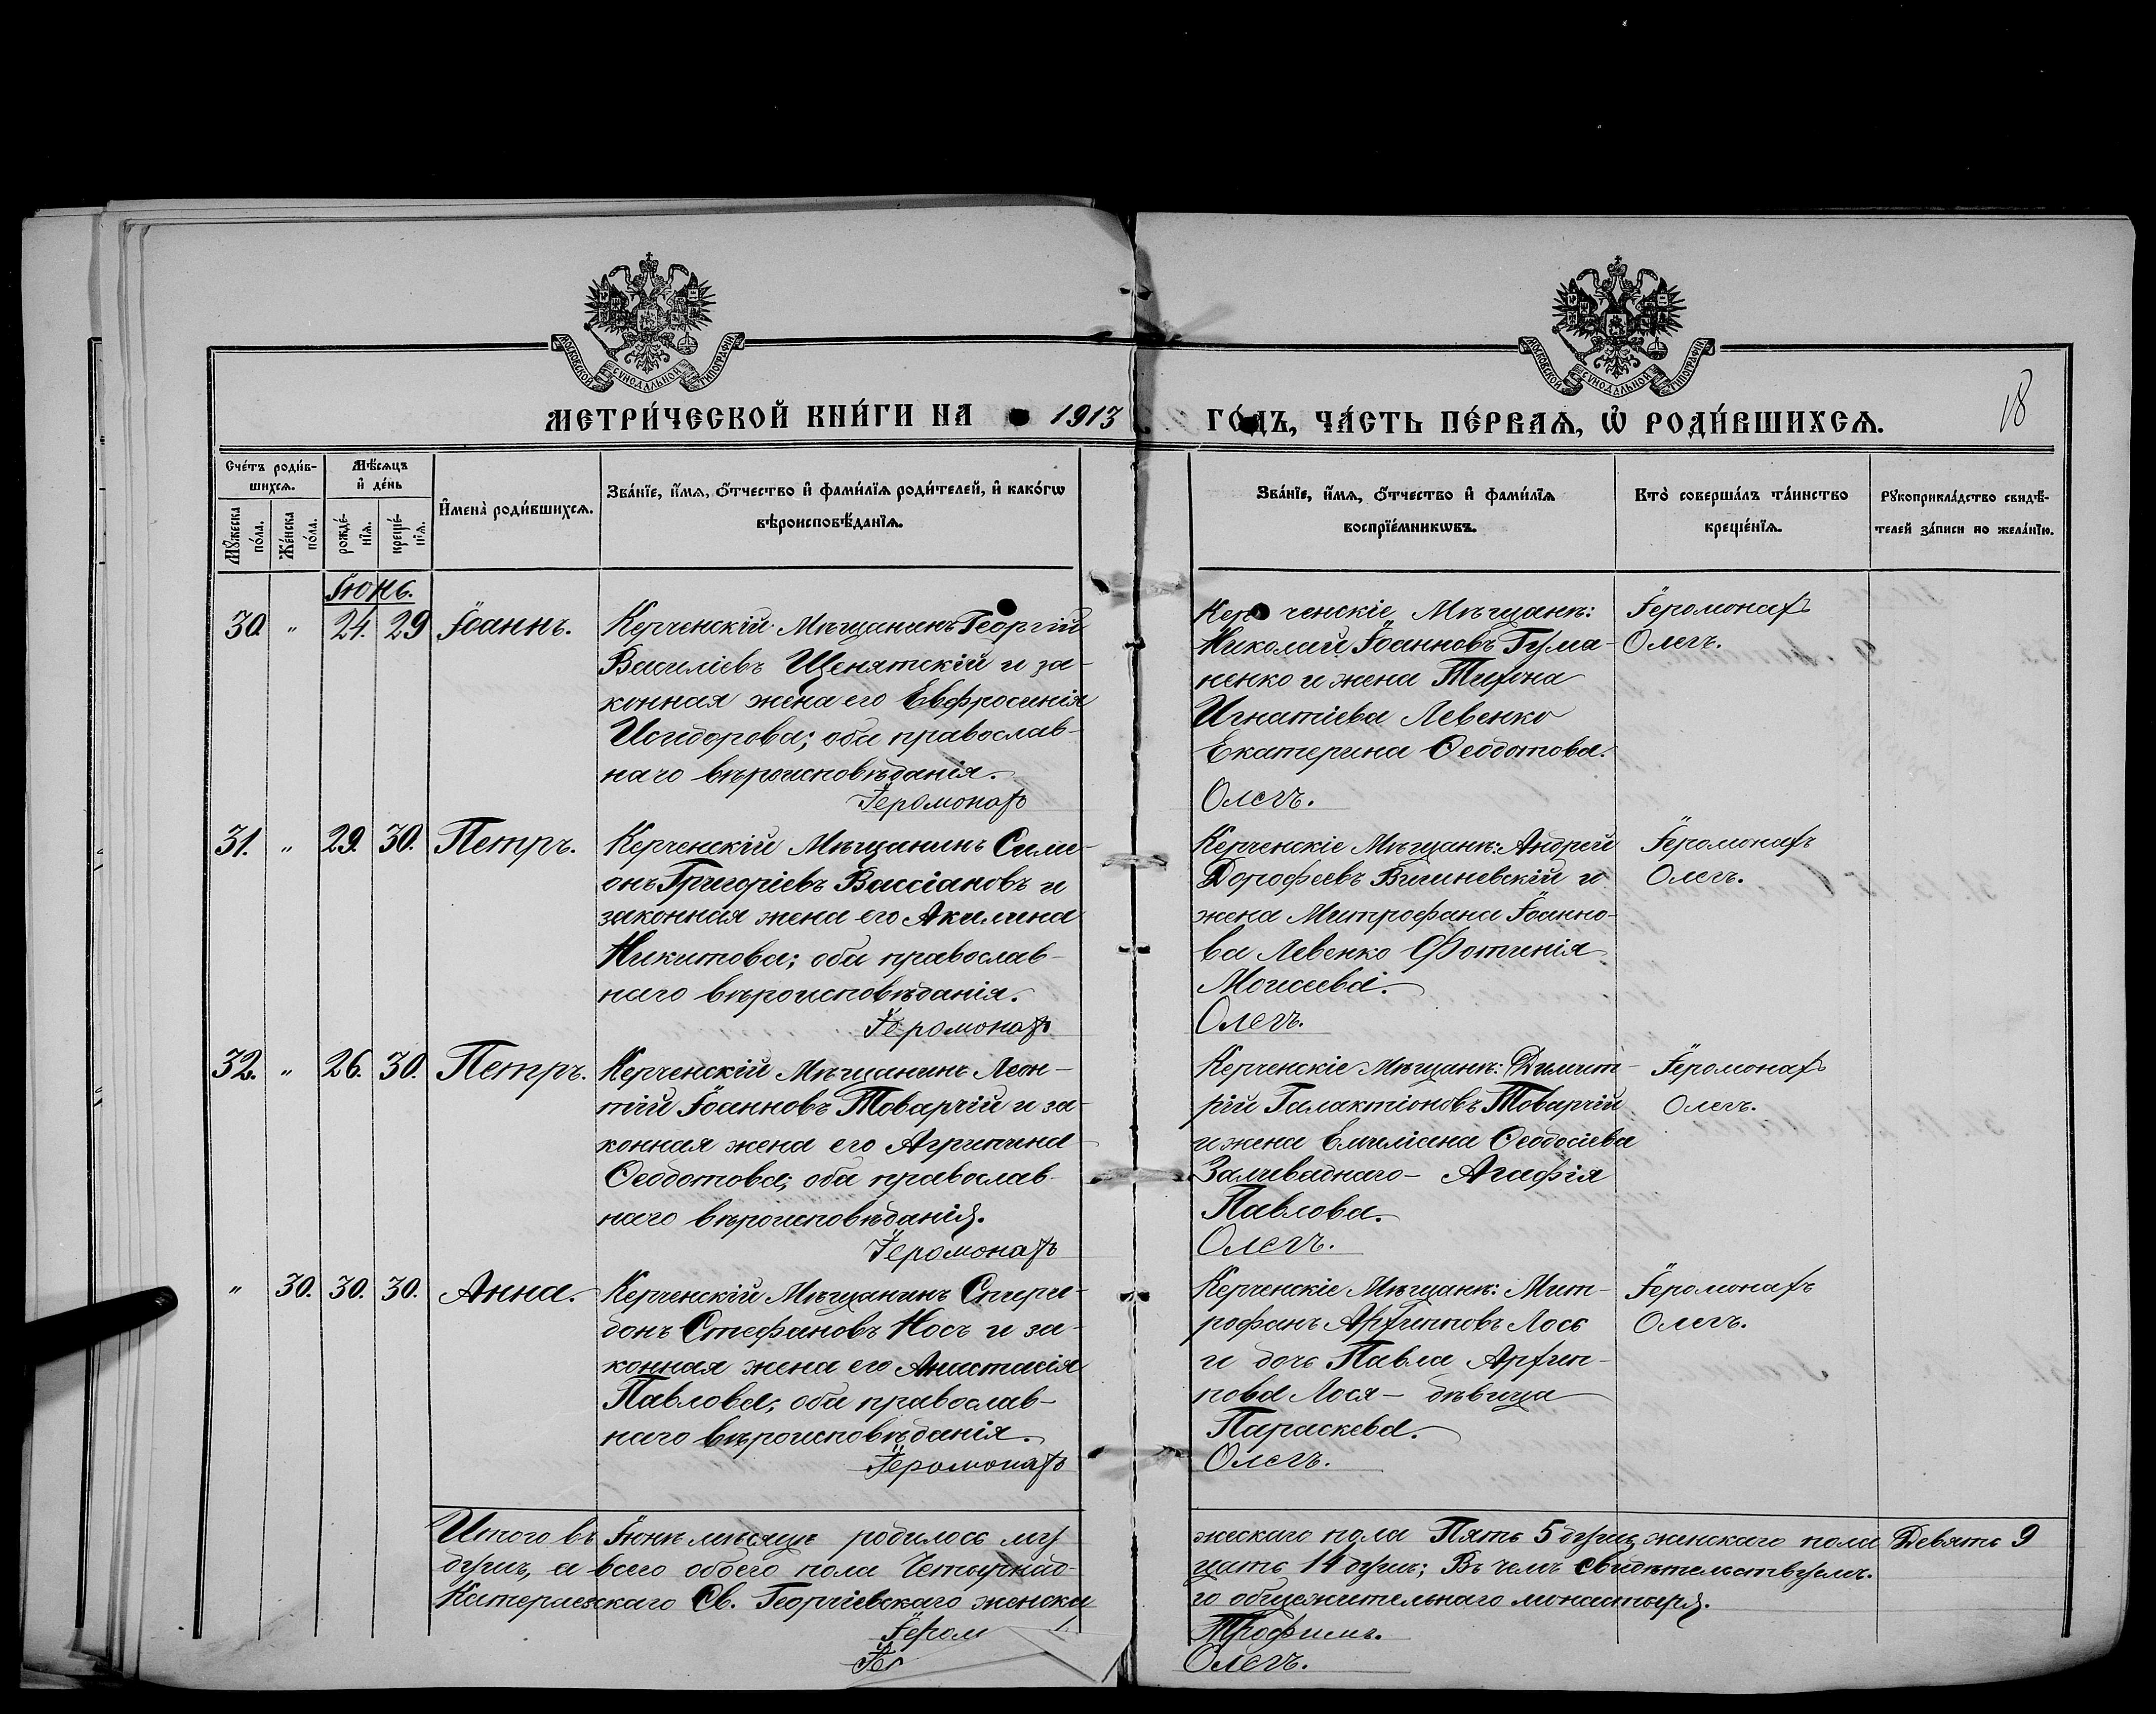 МОСКОВСКОЙ СѴНОДАЛЬНОЙ ТИПОГРАФІИ
МОСКОВСКОЙ СѴНОДАЛЬНОЙ ТИПОГРАФІИ
МЕТРИ́ЧЕСКОЙ КНИ́ГИ НА 1913 ГО́ДЪ, ЧА́СТЬ ПЕ́РВАѦ, Ѽ РОДИ́ВШИХСѦ.
18
Сче́тъ роди́в-
шихсѧ.
Мꙋ́жеска по́ла.
Же́нска по́ла.
Мѣ́сѧцъ
и҆ де́нь
рожде́-
нїѧ.
креще́-
нїѧ.
И҆мена̀ роди́вшихсѧ.
Зва́нїе, и҆́мѧ, ѻ҆́тчество и҆ фами́лїѧ роди́телей, и҆ како́гѡ
вѣроисповѣ́данїѧ.
Зва́нїе, и҆́мѧ, ѻ҆́тчество и҆ фами́лїѧ
воспрїе́мникѡвъ.
Кто̀ соверша́лъ та́инство
креще́нїѧ.
Рꙋкоприкла́дство свидѣ́-
телей за́писи по жела́нїю.
Іюнь.
30. " 24. 29 Іоаннъ.
Керченскій Мѣщанинъ Георгій
Василіевъ Щенятскій и за-
конная жена его Евфросинія
Исидорова; оба православ-
наго вѣроисповѣданія.
Іеромонахъ
Керченскіе Мѣщане:
Николай Іоанновъ Гума-
ненко и жена Тихона
Игнатіева Левенко
Екатерина Ѳеодотова.
Олегъ.
Іеромонахъ
Олегъ.
31. " 29. 30. Петръ.
Керченскій Мѣщанинъ Симе-
онъ Григоріевъ Вассіановъ и
законная жена его Акилина
Никитова; оба православ-
наго вѣроисповѣданія.
Іеромонахъ
Керченскіе Мѣщане: Андрей
Дорофеевъ Вишневскій и
жена Митрофана Іоанно-
ва Левенко Фотинія
Моисеева.
Олегъ.
Іеромонахъ
Олегъ.
32. " 26. 30. Петръ.
Керченскій Мѣщанинъ Леон-
тій Іоанновъ Товарчій и за-
конная жена его Агрипина
Ѳеодотова; оба православ-
наго вѣроисповѣданія.
Іеромонахъ
Керченскіе Мѣщане: Димит-
рій Галактіоновъ Товарчій
и жена Емиліана Ѳеодосіева
Заливаднаго - Агафія
Павлова.
Олегъ.
Іеромонахъ
Олегъ.
" 30. 30. 30. Анна.
Керченскій Мѣщанинъ Спири-
донъ Стефановъ Носъ и за-
конная жена его Анастасія
Павлова; оба православ-
наго вѣроисповѣданія.
Іеромонахъ
Керченскіе Мѣщане: Мит-
рофанъ Архиповъ Лось
и дочь Павла Архип-
пова Лося - дѣвица
Параскева.
Олегъ.
Іеромонахъ
Олегъ.
Итого въ Іюнѣ мѣсяцѣ родилось му-жескаго пола Пять 5 душъ, женскаго пола Девять 9
душъ, а всего обоего пола Четырнад-цать 14 душъ; Въ чемъ свидѣтельствуемъ.
Катерлезскаго Св. Георгіевскаго женска-го общежительнаго монастыря.
Іером Трофимъ.
Іег Олегъ.